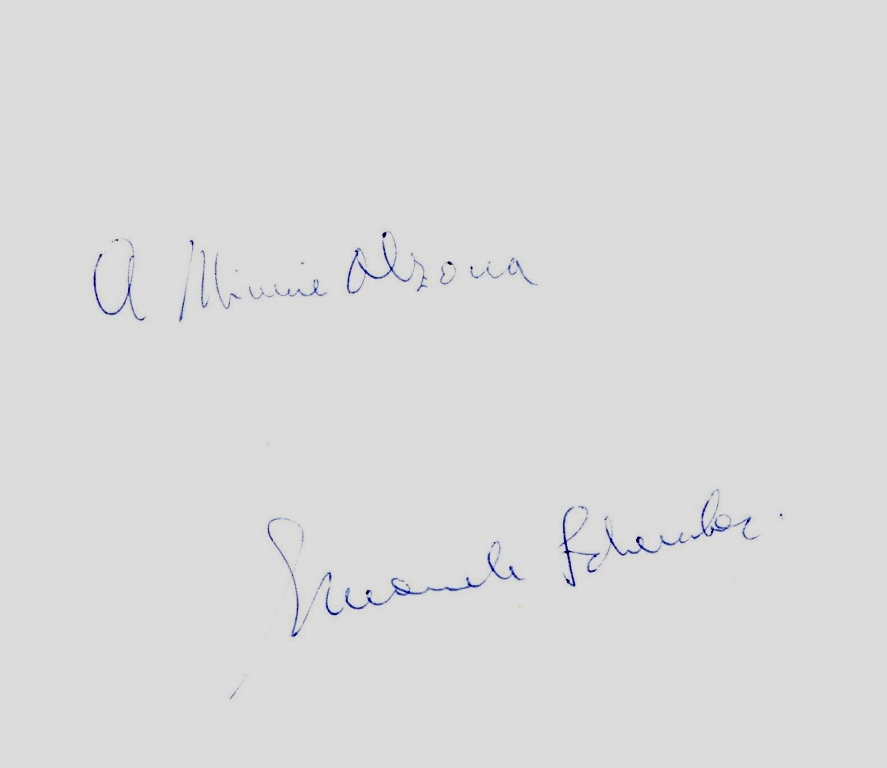 A Minnie Alzona
Emanuele Schembari